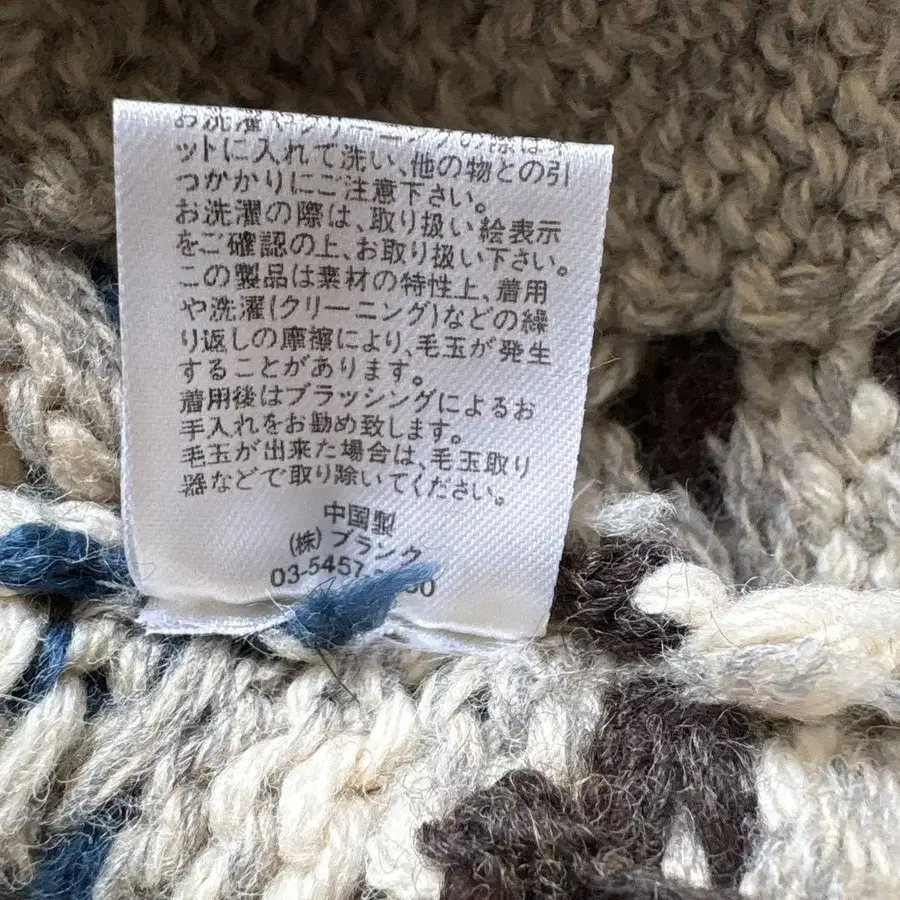 お洗濯やクリーニングの際はネ
ットに入れて洗い、他の物との引
つかかりにご注意下さい。
お洗濯の際は、取り扱い絵表示
をご確認の上、お取り扱い下さい。
この製品は素材の特性上、着用
や洗濯(クリーニング)などの繰
り返しの摩擦により、毛玉が発生
することがあります。
着用後はブラッシングによるお
手入れをお勧め致します。
毛玉が出来た場合は、毛玉取り
器などで取り除いてください。
中国製
(株)ブランク
03-5457-